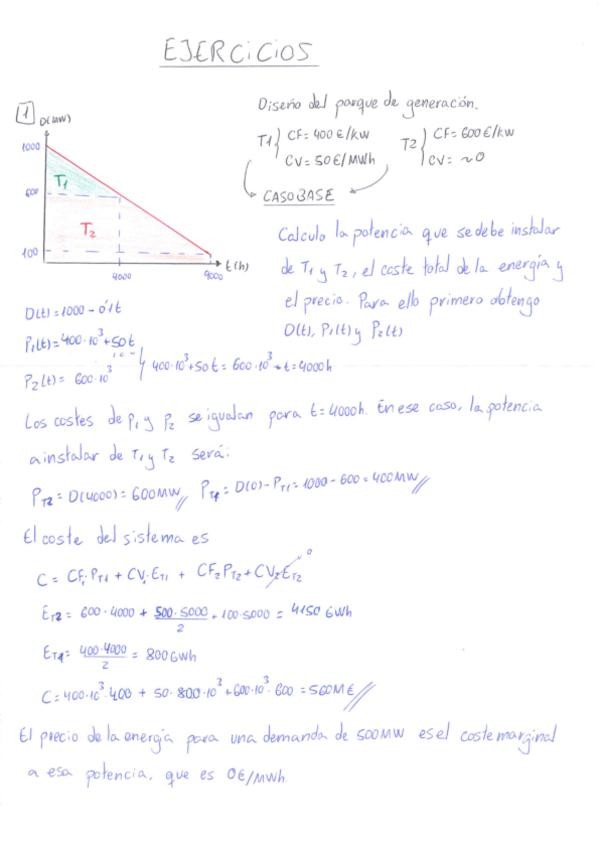 EJERCICIOS
1
D(MW)
1000
600
100
T1
T2
4000
9000
t(h)
Diseño del parque de generación.
T1 { CF= 400 €/kW
CV= 50€/MWh
T2 { CF= 600€/kW
CV= ~0
CASO BASE
Calculo la potencia que se debe instalar
de T1 y T2, el coste total de la energía y
el precio. Para ello primero obtengo
D(t), P1(t) y P2(t)
D(t)=1000-0'1t
P1(t)=400·10³+50t
P2(t)= 600·10³
400·10³+50t = 600·10³ → t=4000h
Los costes de P1 y P2 se igualan para t=4000h. En ese caso, la potencia
a instalar de T1 y T2 será:
PT2= D(4000)=600MW, PT1= D(0)-PT1= 1000-600=400MW
El coste del sistema es
C= CF1·PT1 + CV1·ET1 + CF2PT2 + CV2ET2 0
ET2= 600·4000 + 500·5000/2 + 100·5000 = 4150 GWh
ET1= 400·4000/2 = 800GWh
C=400·10³·400 + 50·800·10³+600·10³·600 = 560M€
El precio de la energía para una demanda de 500MW es el coste marginal
a esa potencia, que es 0€/MWh